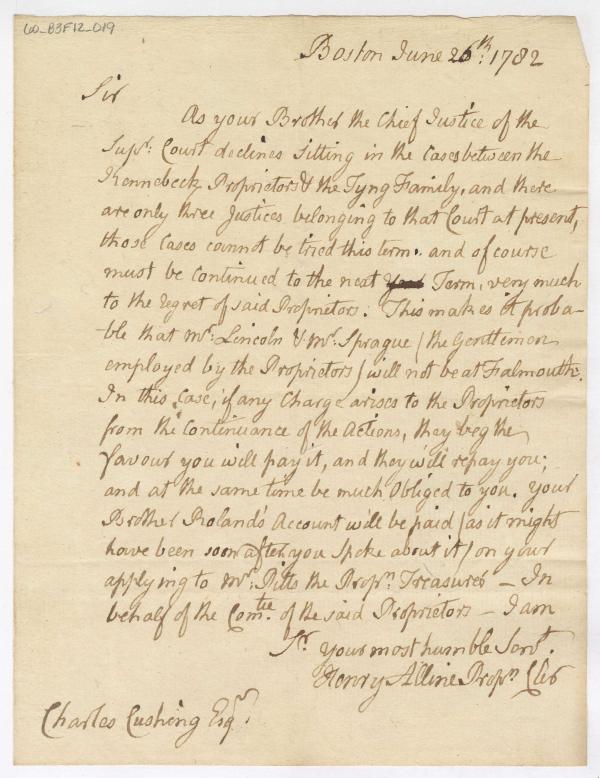 60_B3F12_019
Boston June 26th: 1782
Sir
As your Brother the Chief Justice of the
Supr: Court declines sitting in the Cases between the
Kennebeck Proprietors & the Tyng Family, and there
are only three Justices belonging to that Court at present,
those Cases cannot be tried this term. and of course
must be continued to the next Term, very much
to the regret of said Proprietors. This makes it proba-
ble that Mr. Lincoln & Mr. Sprague (the Gentlemen
employed by the Proprietors) will not be at Falmouth.
In this Case, if any Charge arises to the Proprietors
from the Continuance of the Actions, they beg the
favour you will pay it, and they will repay you;
and at the same time be much Obliged to you. Your
Brother Roland's Account will be paid (as it might
have been soon after you Spoke about it) on your
applying to Mr. Pitts the Propn. Treasurer – In
behalf of the Comtee. of the said Proprietors – I am
Sr. your most humble Servt.
Henry Alline Propn. Cler
Charles Cushing Esqr.